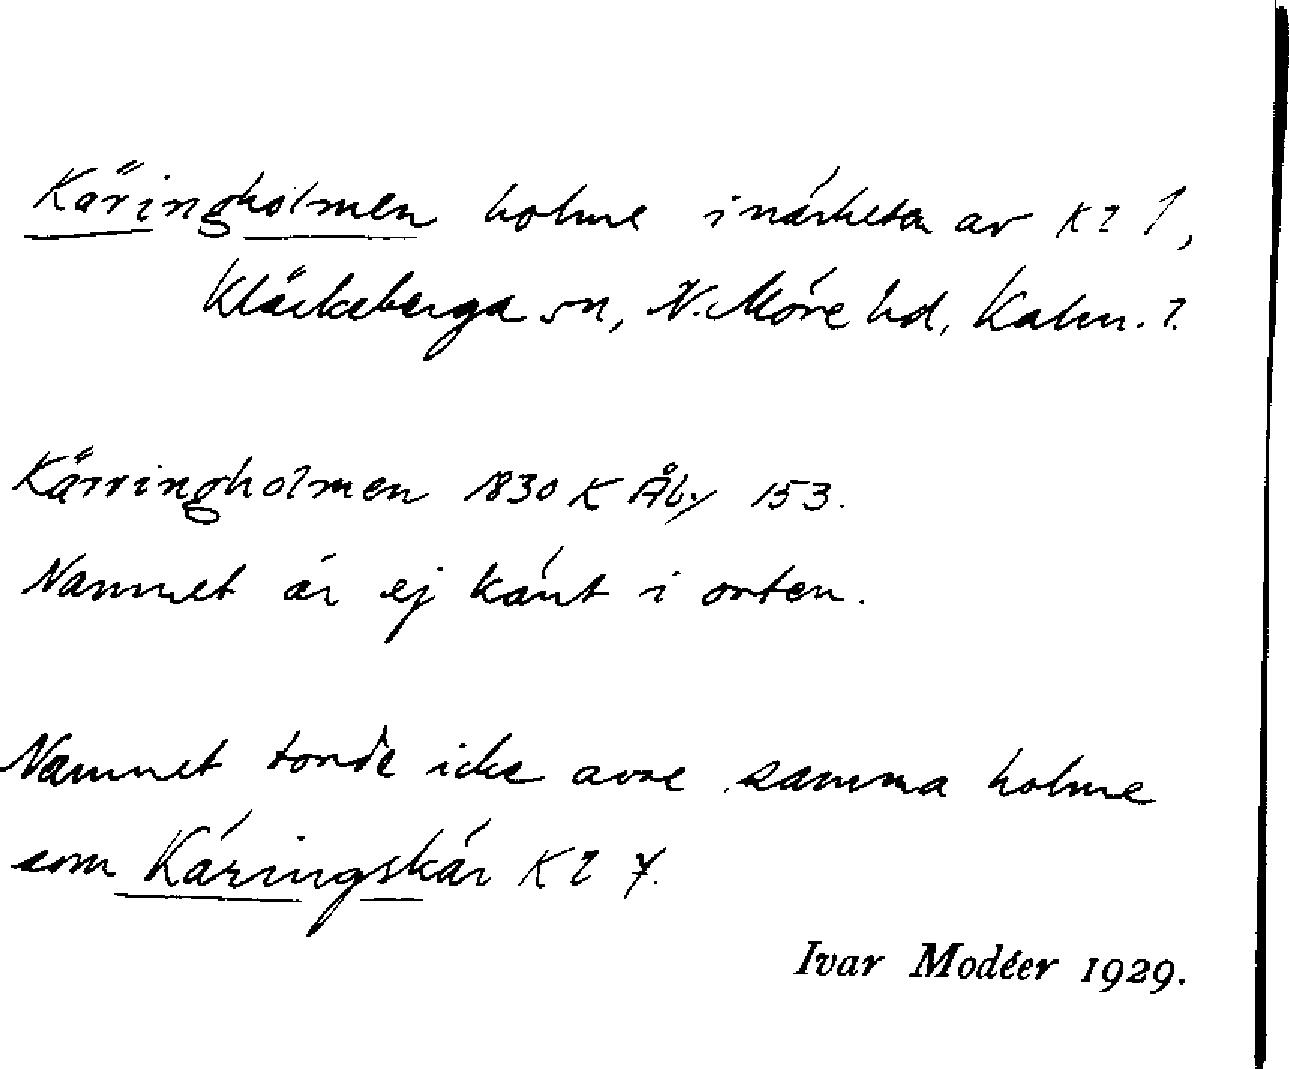 Käringholmen holme i närheten av Kl 1,
Kläckeberga sn, N. Möre hd, Kalm. l.
Kärringholmen 1830 K Åby 153.
Namnet är ej känt i orten.
Namnet torde icke avse samma holme
som Kärringskär Kl 7.
Ivar Modéer 1929.